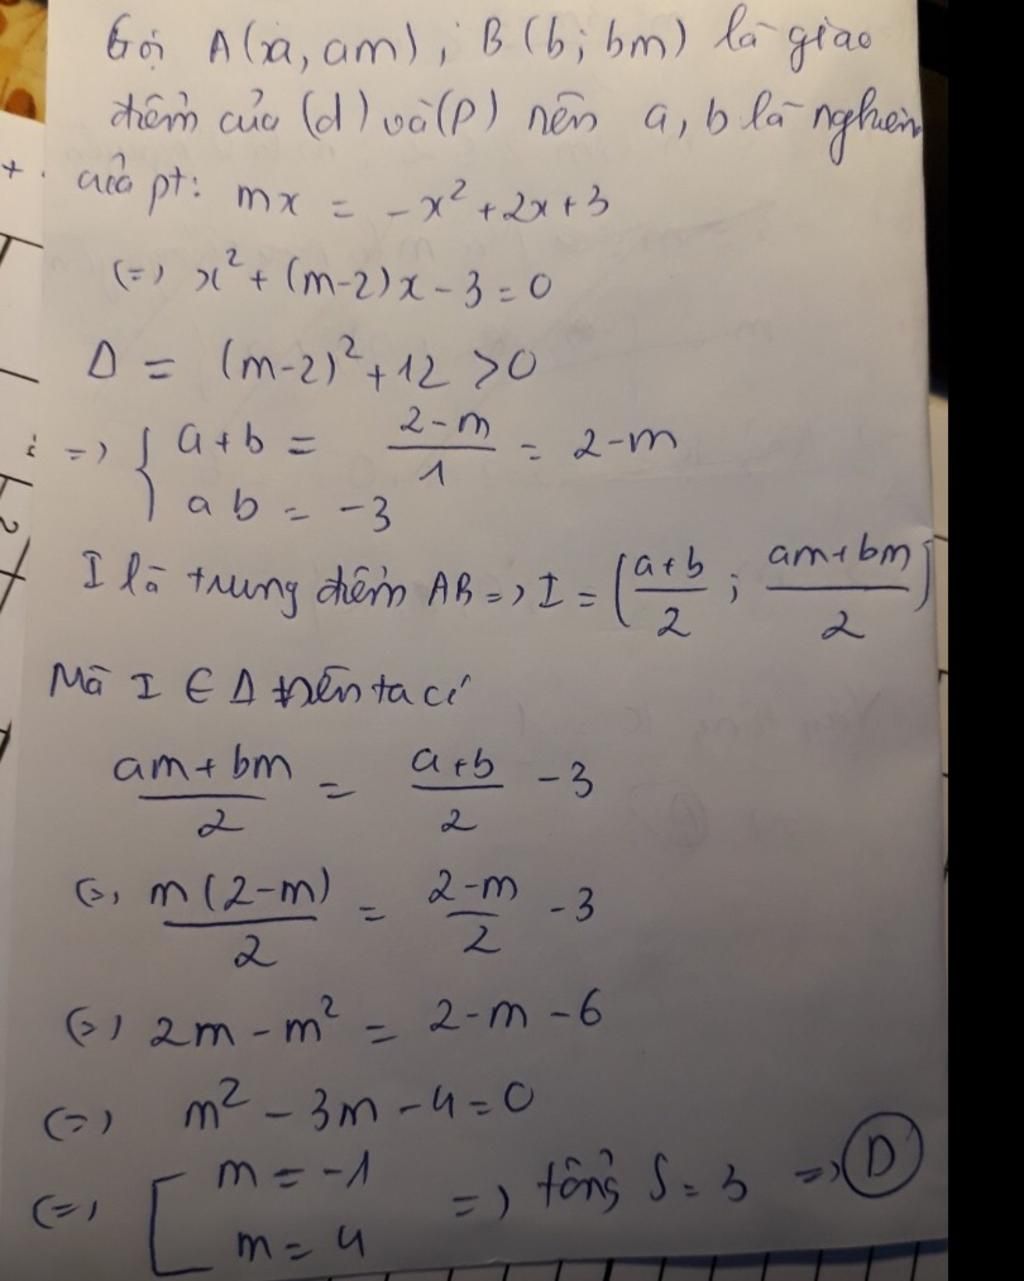 Gọi A(a, am), B(b; bm) là giao
điểm của (d) và (P) nên a, b là nghiệm
của pt: mx = -x² + 2x + 3
(=) x² + (m-2)x - 3 = 0
Δ = (m-2)² + 12 > 0
=) { a+b = \frac{2-m}{1} = 2-m
ab = -3
I là trung điểm AB =) I = (\frac{a+b}{2} ; \frac{am+bm}{2})
Mà I ∈ Δ nên ta có
\frac{am+bm}{2} = \frac{a+b}{2} - 3
(=) \frac{m(2-m)}{2} = \frac{2-m}{2} - 3
(=) 2m - m² = 2-m-6
(=) m² - 3m - 4 = 0
(=) [ m = -1
m = 4
=) tổng S = 3 =) D